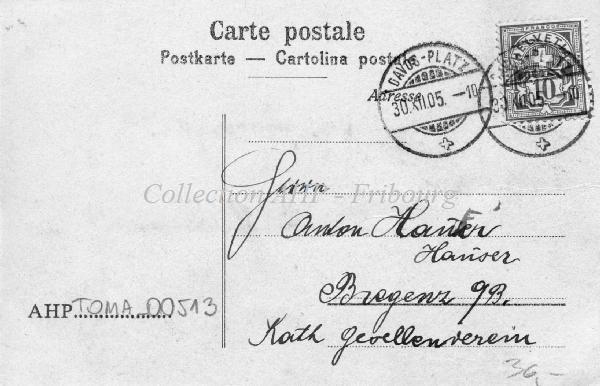 Carte postale
Postkarte — Cartolina postale
Adresse
DAVOS-PLATZ
30.XII.05. -10
HELVETIA
FRANCO
10
Collection AHP - Fribourg
Herrn
Anton Hauser
Hauser
Bregenz 9B.
Kath Gesellenverein
AHP TOMA 00513
36.-